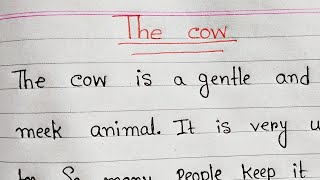 The cow
The cow is a gentle and
meek animal. It is very
So many people keep it